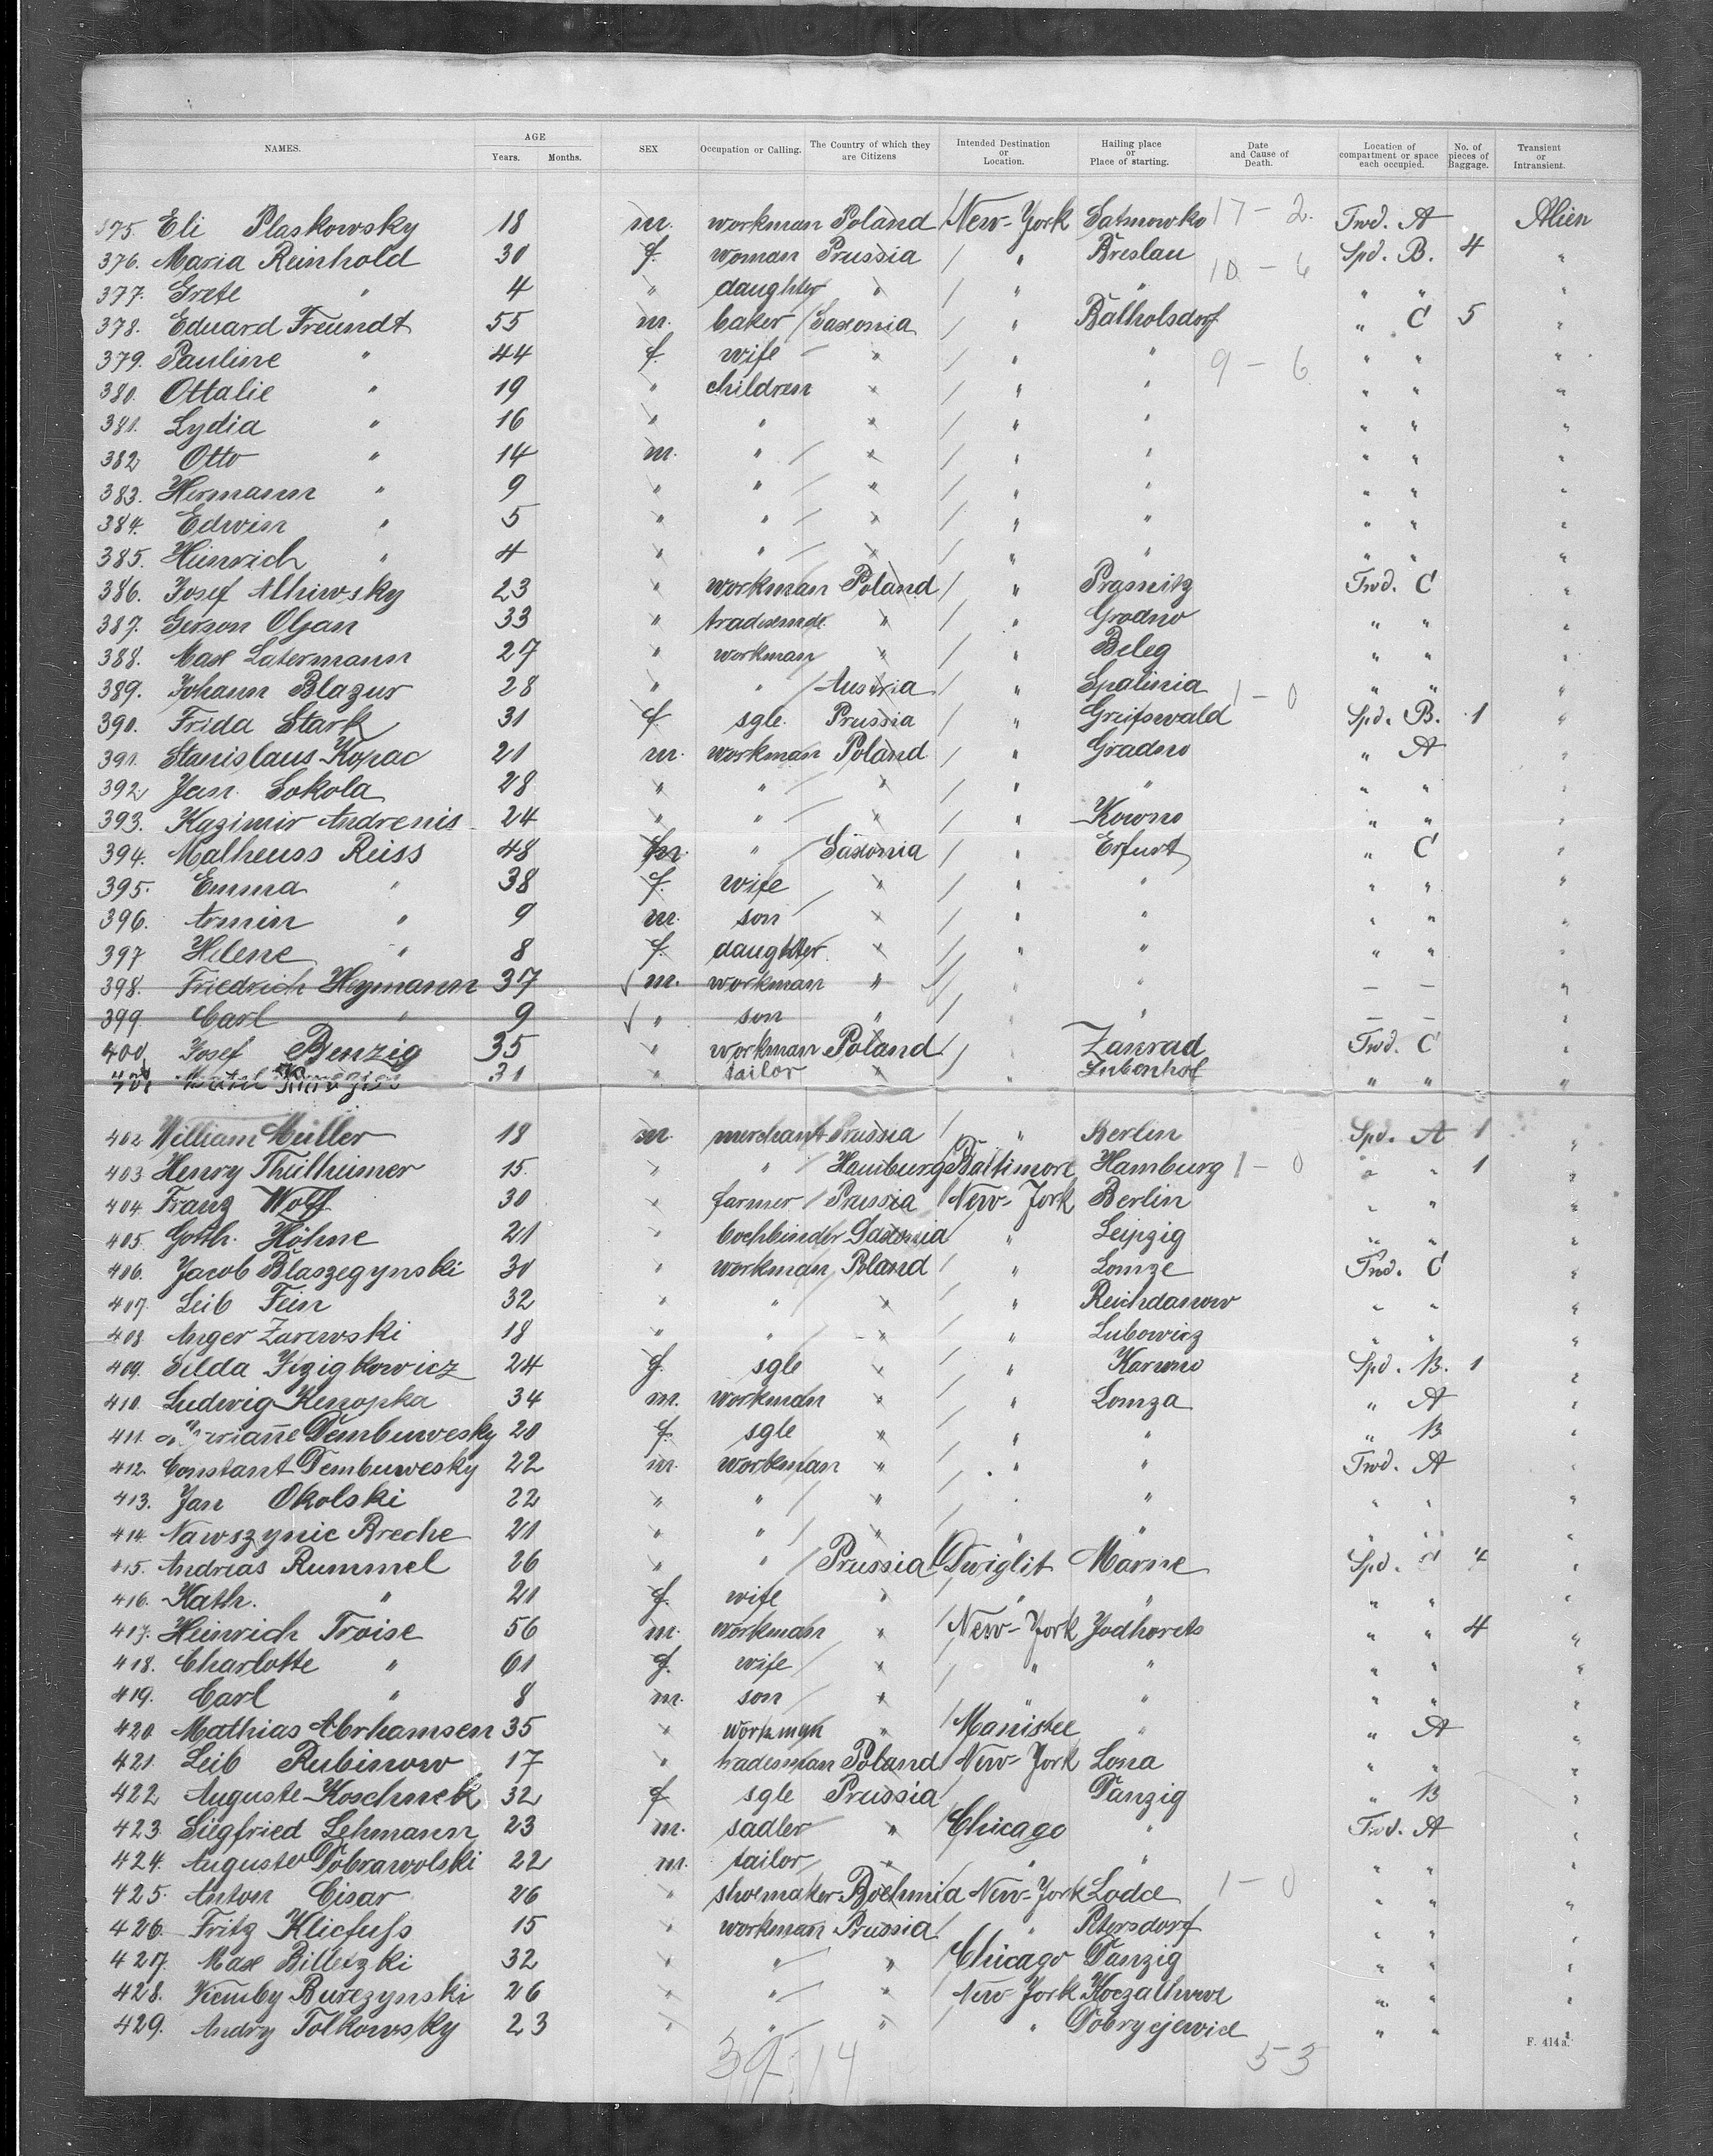 NAMES. AGE Years. Months. SEX Occupation or Calling. The Country of which they are Citizens Intended Destination or Location. Hailing place or Place of starting. Date and Cause of Death. Location of compartment or space each occupied. No. of pieces of Baggage. Transient or Intransient.
375. Eli Plaskowsky 18 m. workman Poland New-York Satnowko 17 - 2. Twd. A Alien
376. Maria Reinhold 30 f. woman Prussia / " Breslau 10 - 6 Spd. B. 4 "
377. Grete " 4 " daughter " / " " " " "
378. Eduard Freundt 55 m. baker / Saxonia / " Batholsdorf " C 5 "
379. Pauline " 44 f. wife - " / " " 9 - 6 " " "
380. Ottalie " 19 " children " / " " " " "
381. Lydia " 16 " " " / " " " " "
382 Otto " 14 m. " / " / " " " " "
383. Hermann " 9 " " / " / " " " " "
384. Edwin " 5 " " / " / " " " " "
385. Heinrich " 4 " " / " / " " " " "
386. Josef Athiwsky 23 " workman Poland / " Prasnitz Twd. C "
387. Gerson Oljan 33 " " / " Grodno " " "
388. Max Latermann 27 " workman " / " Beleg " " "
389. Johann Blazur 28 " " / Austria / " Spalinia 1 - 0 " " "
390. Frida Stark 31 f sgle. Prussia / " Greifswald Spd. B. 1 "
391. Stanislaus Kopac 21 m. workman Poland / " Gradno " A "
392. Jan Sokola 28 " " / " / " " " " "
393. Kazimir Andrenis 24 " " / " / " Kowno " " "
394. Matheuss Reiss 48 m. " / Saxonia / " Erfurt " C "
395. Emma " 38 f. wife " / " " " " "
396. Armin " 9 m. son / " / " " " " "
397 Helene " 8 f. daughter. " / " " " " "
398. Friedrich Heymann 37 √ m. workman " / " " - - "
399. Carl " 9 √ " son " / " " - - "
400. Josef Benzig 35 " workman Poland / " Zanrad Twd. C "
401 31 " tailor " " Lubenhof " " "
402. William Müller 18 m. merchant Prussia / " Berlin Spd. A 1 "
403 Henry Theilheimer 15. " " Hamburg Baltimore Hamburg 1 - 0 " " 1 "
404. Franz Wolff 30 " farmer / Prussia / New-York Berlin " " "
405. Gotth. Höhne 21 " bochbinder Saxonia " Leipzig " " "
406. Jacob Blaszegynski 30 " workman Poland / " Lomze Twd. C "
407. Leib Fein 32 " " / " " Reichdanow " " "
408. Anger Zarewski 18 " " / " " Lubowicz " " "
409. Selda Jzigkowicz 24 f. sgle " " Karwno Spd. B. 1 "
410. Ludwig Kenopka 34 m. workman " / " Lomza " A "
411. Marianne Dembuwesky 20 f. sgle " / " " " B "
412. Constant Dembuwesky 22 m. workman " / " " Twd. A "
413. Jan Okolski 22 " " / " / " " " " "
414. Nawszynic Breche 21 " " / " / " " " " "
415. Andreas Rummel 26 " " / Prussia Dwiglit Marne Spd. C 4 "
416. Kath. " 21 f. wife " / " " " " "
417. Heinrich Troise 56 m. workman " / New-York Jodhorets " " 4 "
418. Charlotte " 61 f. wife / " / " " " " "
419. Carl " 8 m. son / " / " " " " "
420. Mathias Abrhamsen 35 " workman " / Manistee " " A "
421. Leib Rubinow 17 " tradesman Poland New-York Lona " " "
422 Auguste Koschnek 32 f sgle Prussia Danzig " B "
423. Siegfried Lehmann 23 m. sadler " Chicago " Twd. A "
424. Auguste Dobrawolski 22 m. tailor " / " " " " "
425. Anton Cisar 26 " shoemaker Boehmia New-York Lodd 1 - 0 " " "
426. Fritz Kliefuss 15 " workman Prussia " Petersdorf " " "
427. Max Billetzki 32 " " / " Chicago Danzig " " "
428. Burezynski 26 " " / " New York " " "
429. Andry Tolkowsky 23 " " / " " Dobryejewid " " "
39 - 14 53
F. 414 a.